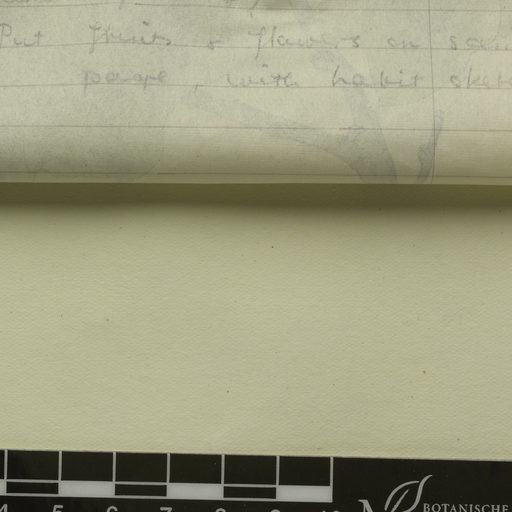 Put fruits & flowers on sam
page, with habit sketc
4 5 6 7 8 9 10
BOTANISCHE